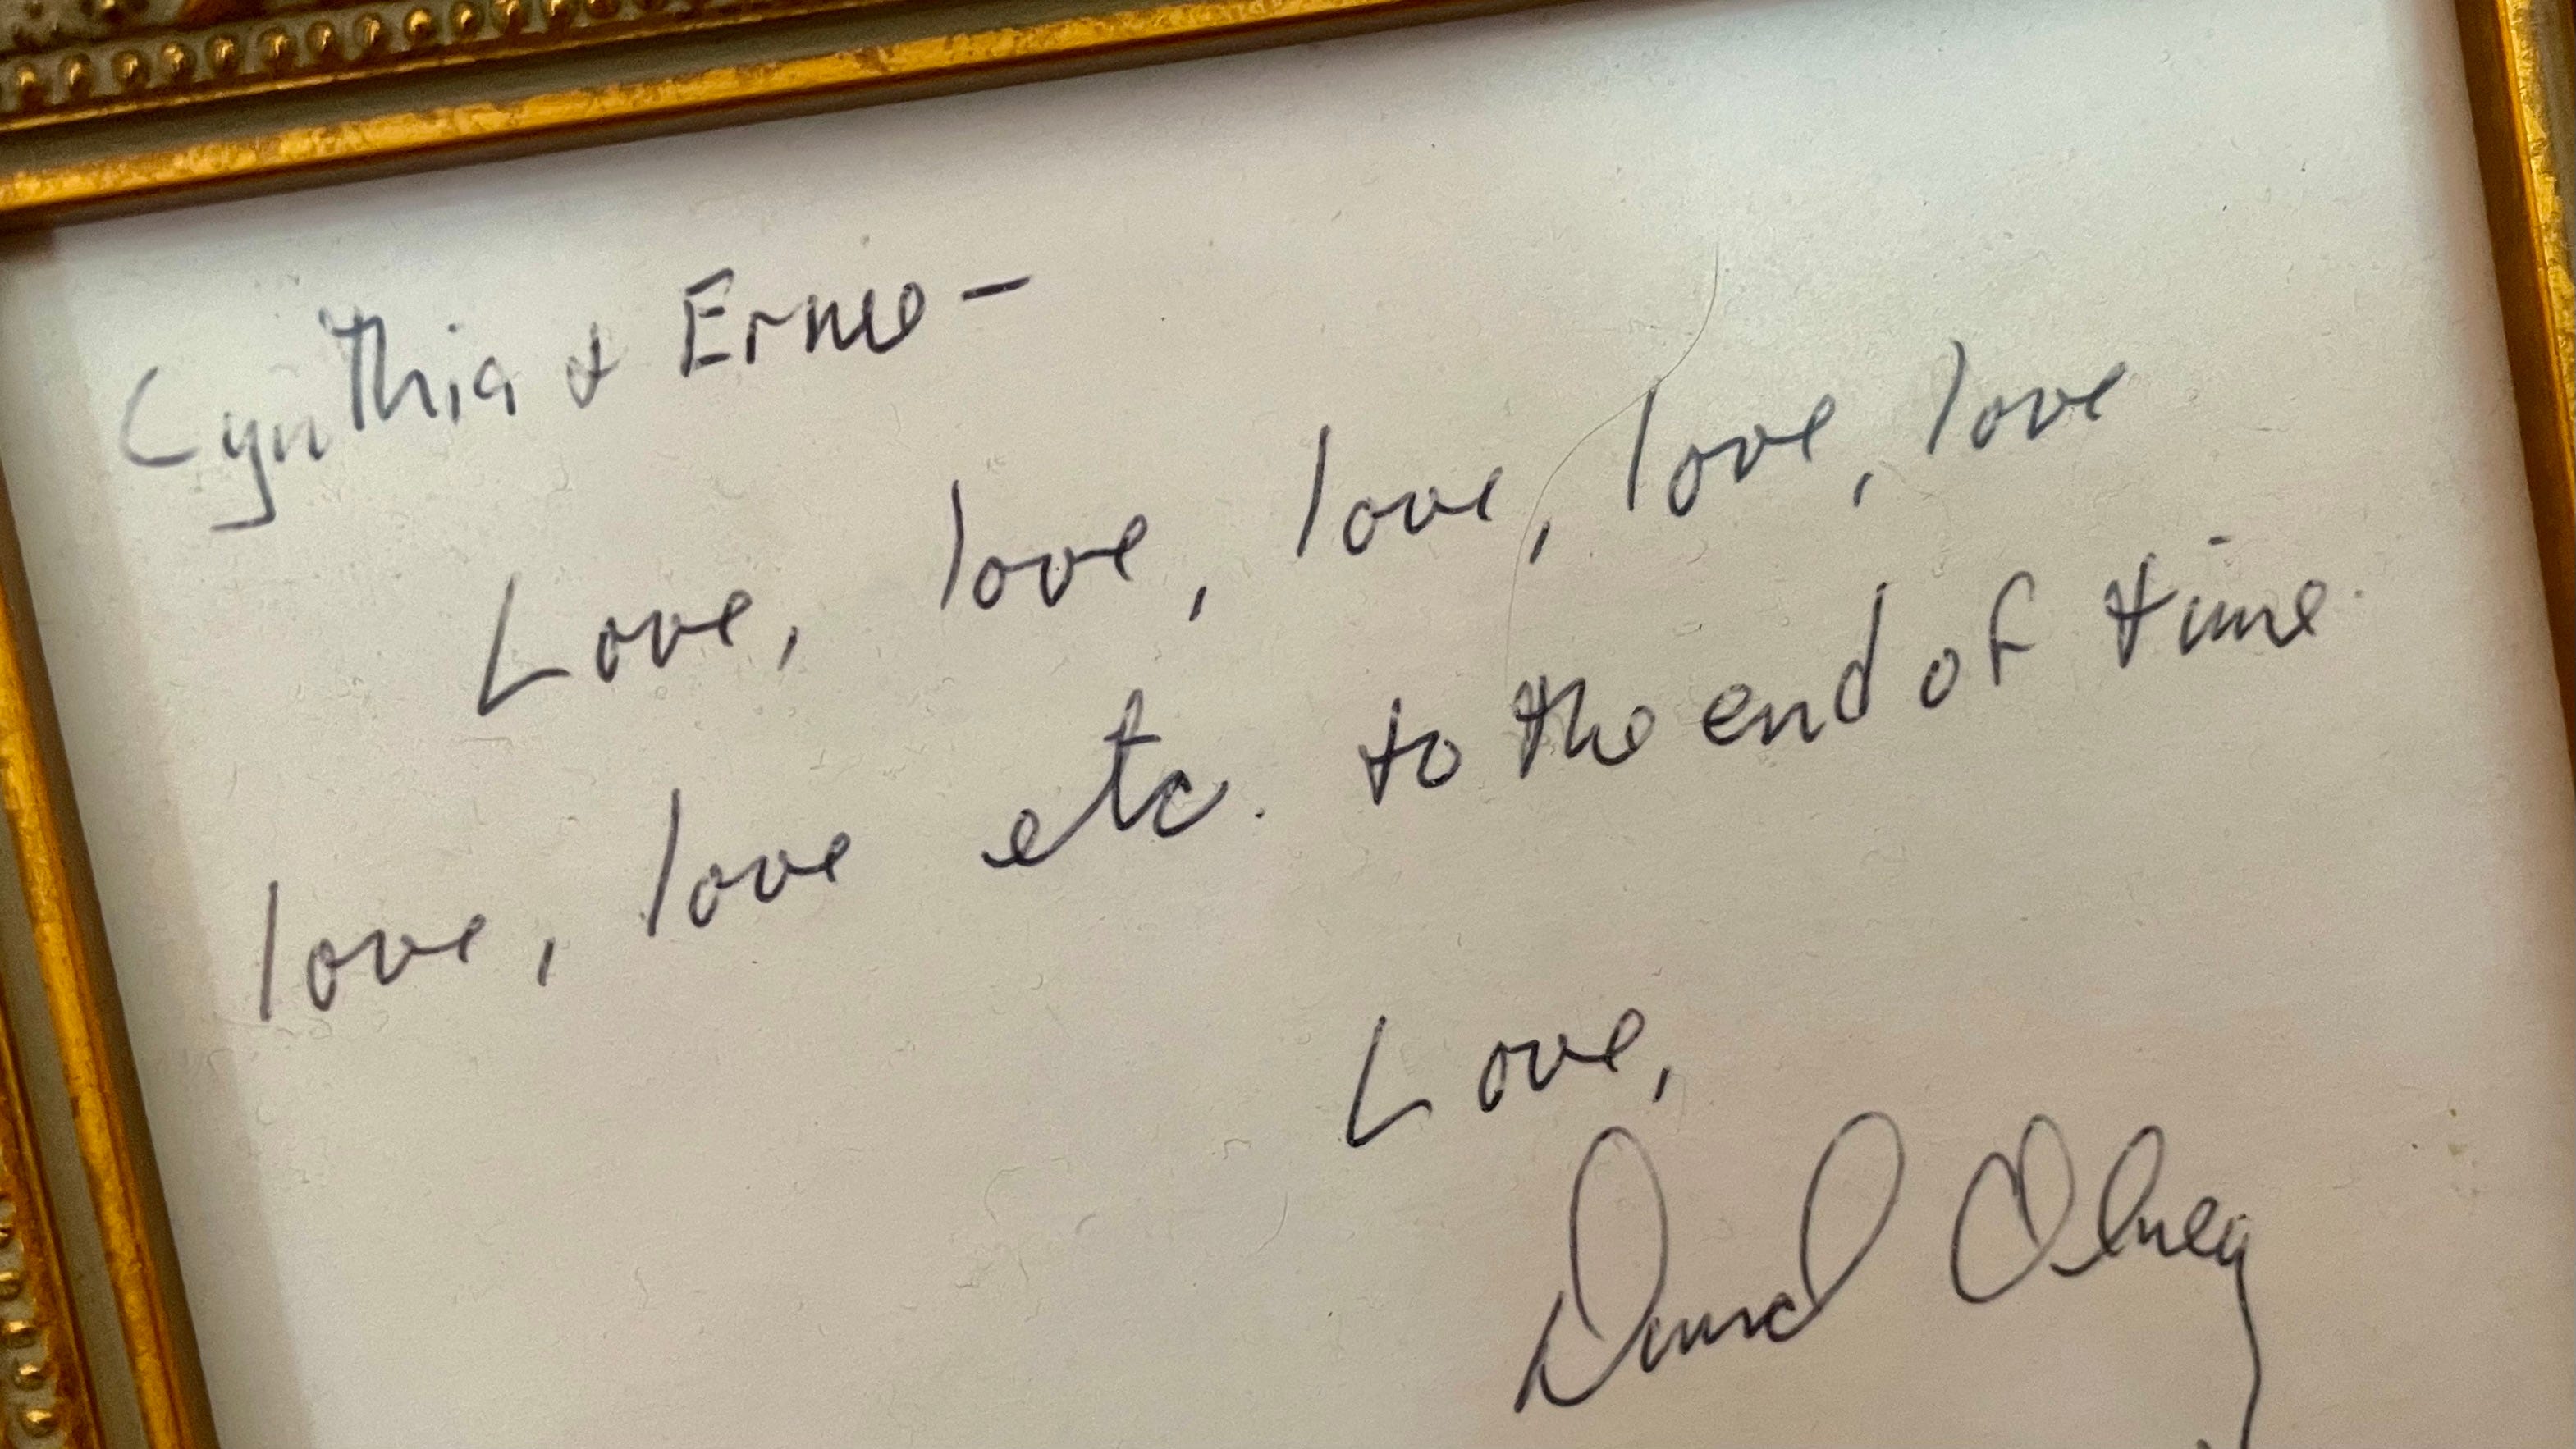 Cynthia & Ernie –
Love, love, love, love, love
love, love etc. to the end of time.
Love,
David Olney